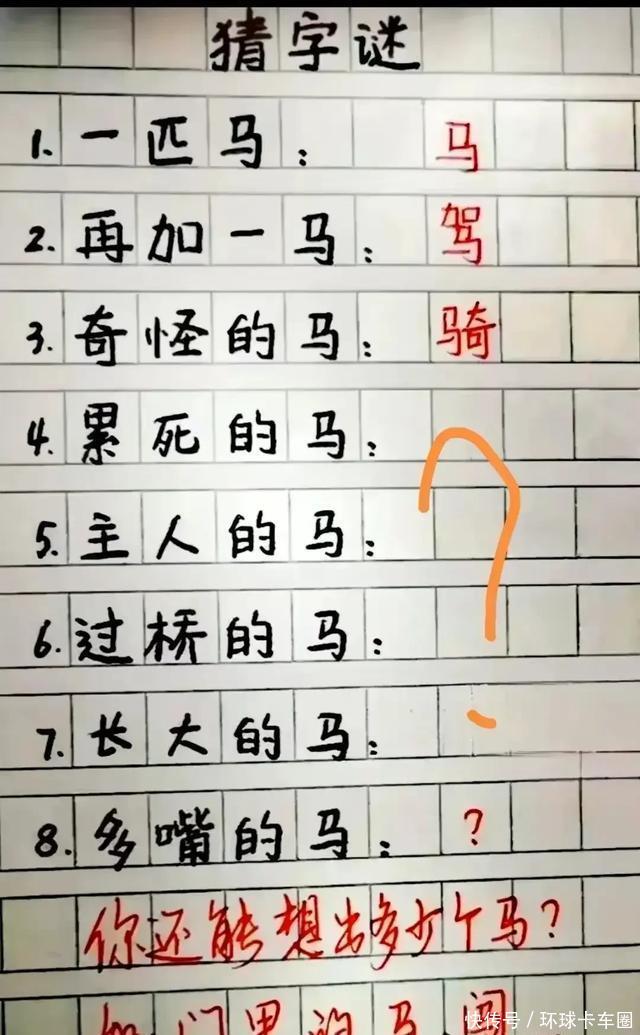 猜字谜
1. 一匹马： 马
2. 再加一马： 驾
3. 奇怪的马： 骑
4. 累死的马：
5. 主人的马：
6. 过桥的马：
7. 长大的马：
8. 多嘴的马： ?
你还能想出多少个马?
如门里的马 闯
快传号/环球卡车圈